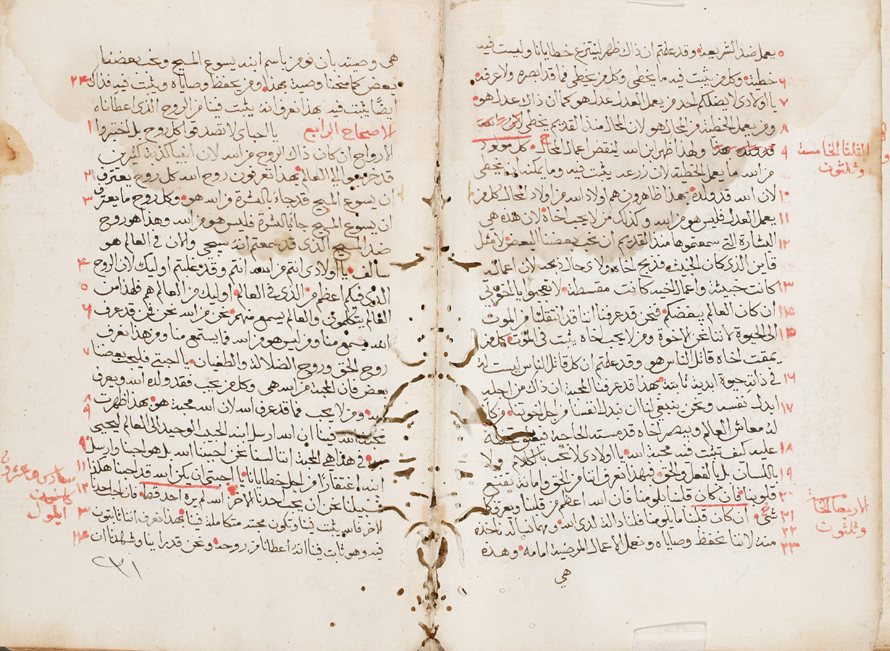 ٥ يعمل ضد الشريعه وقد علمتم ان ذاك ظهر لينتزع خطايانا وليست فيه
٦ خطيته وكل من يثبت فيه ما يخطي وكل من يخطي فما قد ابصره ولا عرفه
٧ يا اولادي لا يضلكم احد من يعمل العدل عدل هو كما ان ذاك عدل هو
٨ ومن يعمل الخطية فمن المحال هو لان المحال منذ القديم يخطي
٩ ولهذا ظهر ابن الله لينقض اعمال المحال وكل مولود
من الله ما يعمل الخطية لان زرعه يثبت فيه وما يمكنه ان يخطي
١٠ لان الله قد ولده بهذا ظاهرون هم اولاد الله من اولاد المحال كل من
١١ يعمل العدل فليس هو من الله وكذلك من لا يحب اخاه لان هذه هي
١٢ البشارة التي سمعتموها منذ القديم ان يحب بعضنا البعض لا مثل
قاين الذي كان من الخبيث فذبح اخاه ولاي حال ذبحه لان اعماله
١٣ كانت خبيثة واعمال اخيه كانت مقسطة لا تعجبوا يا اخوتي
١٤ ان كان العالم يبغضكم فنحن قد عرفنا اننا قد انتقلنا من الموت
١٥ الى الحيوة لاننا نحب الاخوة ومن لا يحب اخاه يثبت في الموت كل من
يمقت اخاه قاتل الناس هو وقد علمتم ان كل قاتل الناس ليست له
١٦ في ذاته حيوة ابدية ثابتة بهذا قد عرفنا المحبة ان ذاك من اجلنا
١٧ ابدل نفسه ونحن ينبغي لنا ان نبدل انفسنا من اجل اخوتنا ومن كان
له معاش العالم ويبصر اخاه قد مسته الحاجة
١٨ عليه كيف تثبت فيه محبة الله يا اولادي لا نحب بالكلام ولا
١٩ باللسان بل بالفعل والحق فبهذا نعرف اننا من الحق وامامه يقتنع
٢٠ قلوبنا فان كان قلبنا يلومنا فان الله اعظم من قلبنا ويعرف كل
٢١ شي ان كان قلبنا ما يلومنا فلنا دالة لدى الله ومهما نساله ناخذه
٢٢ منه لاننا نحفظ وصاياه ونعمل الاعمال المرضية امامه وهذه
٢٣
هي
الخامسة
وثلثون
وثلثون
هي وصيته بان نومن باسم ابنه يسوع المسيح ويحب بعضنا
٢٤ بعض كما منحنا وصية بهذا ومن يحفظ وصاياه يثبت فيه وذاك
ايضا يثبت فيه بهذا نعرف انه يثبت فينا من الروح الذي اعطاناه
١ الاصحاح الرابع يا احباي لا تصدقوا كل روح بل اختبروا
الارواح ان كان ذاك الروح من الله لان انبيا كذبة كثيرين
٢ قد خرجوا الى العالم بهذا تعرفون روح الله كل روح يعترف
٣ ان يسوع المسيح قد جاء بالبشرة من الله هو وكل روح ما يعترف
ان يسوع المسيح جاء بالبشرة فليس هو من الله وهذا هو روح
ضد المسيح الذي قد سمعتم انه سيجي والان في العالم هو
٤ سالف يا اولادي انتم من الله انتم وقد غلبتم اوليك لان الروح
٥ الذي فيكم اعظم من الذي في العالم اوليك من العالم هم فلهذا من
٦ العالم يتكلمون والعالم يسمع منهم نحن من الله نحن فمن قد عرف
الله يسمع منا ومن ليس هو من الله فما يستمع منا ومن هذا نعرف
٧ روح الحق وروح الضلالة والطغيان يا احبتي فليحب بعضنا
بعض فان المحبة من الله هي وكل من يحب فقد ولده الله ويعرف
٨ الله ومن لا يحب فما قد عرف الله لان الله محبة هو بهذا ظهرت
٩ محبة الله فينا ان الله ارسل ابنه الحبيب الوحيد الى العالم ليحيي
١٠ به في هذا هي المحبة اننا لسنا نحن احببنا الله بل هو احبنا وارسل
١١ ابنه اغتفارا من اجل خطايانا يا احبتي ان يكن الله قد احبنا هكذا
١٢ فينبغي لنا نحن ان يحب احدنا الاخر الله لم يره احد قط فان احب احدنا
١٣ الاخر فالله يثبت فينا وتكون محبته متكاملة فينا بهذا نعرف اننا ثابتون
١٤ فيه وهو ثابت فينا انه اعطانا من روحه ونحن قد راينا وشهدنا ان
ايلول